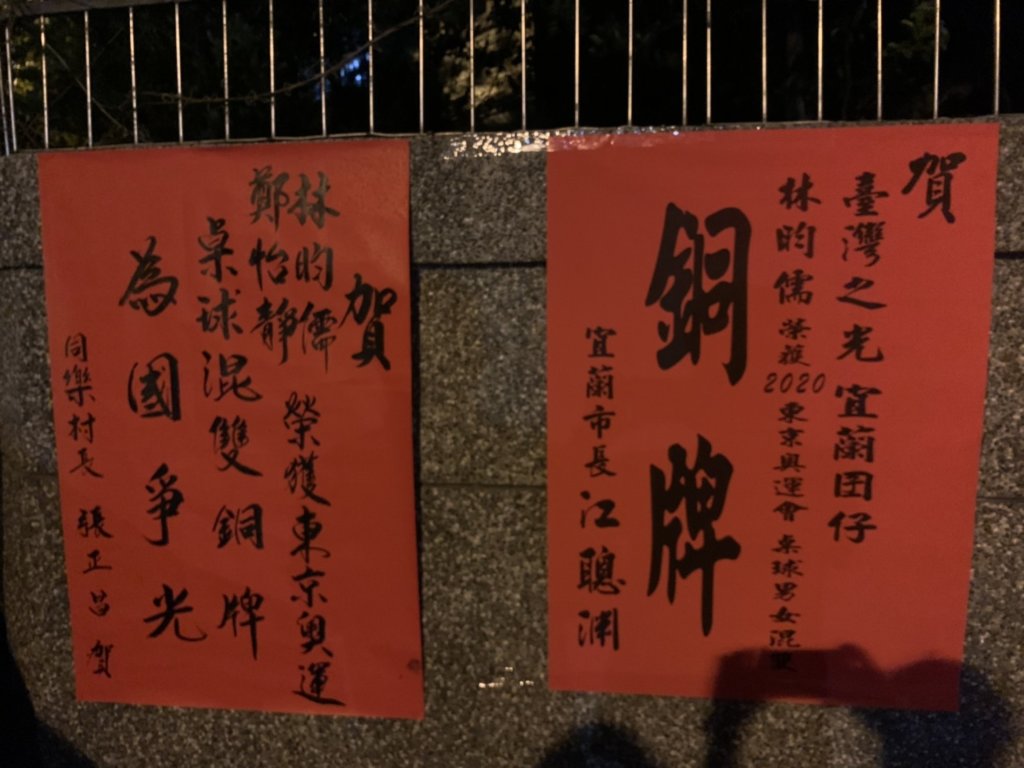 賀
臺灣之光 宜蘭囝仔
林昀儒 榮獲2020東京奧運會 桌球男女混雙
銅牌
宜蘭市長 江聰淵
賀
林昀儒
鄭怡靜
榮獲東京奧運
桌球混雙銅牌
為國爭光
同樂村長 張正昌 賀